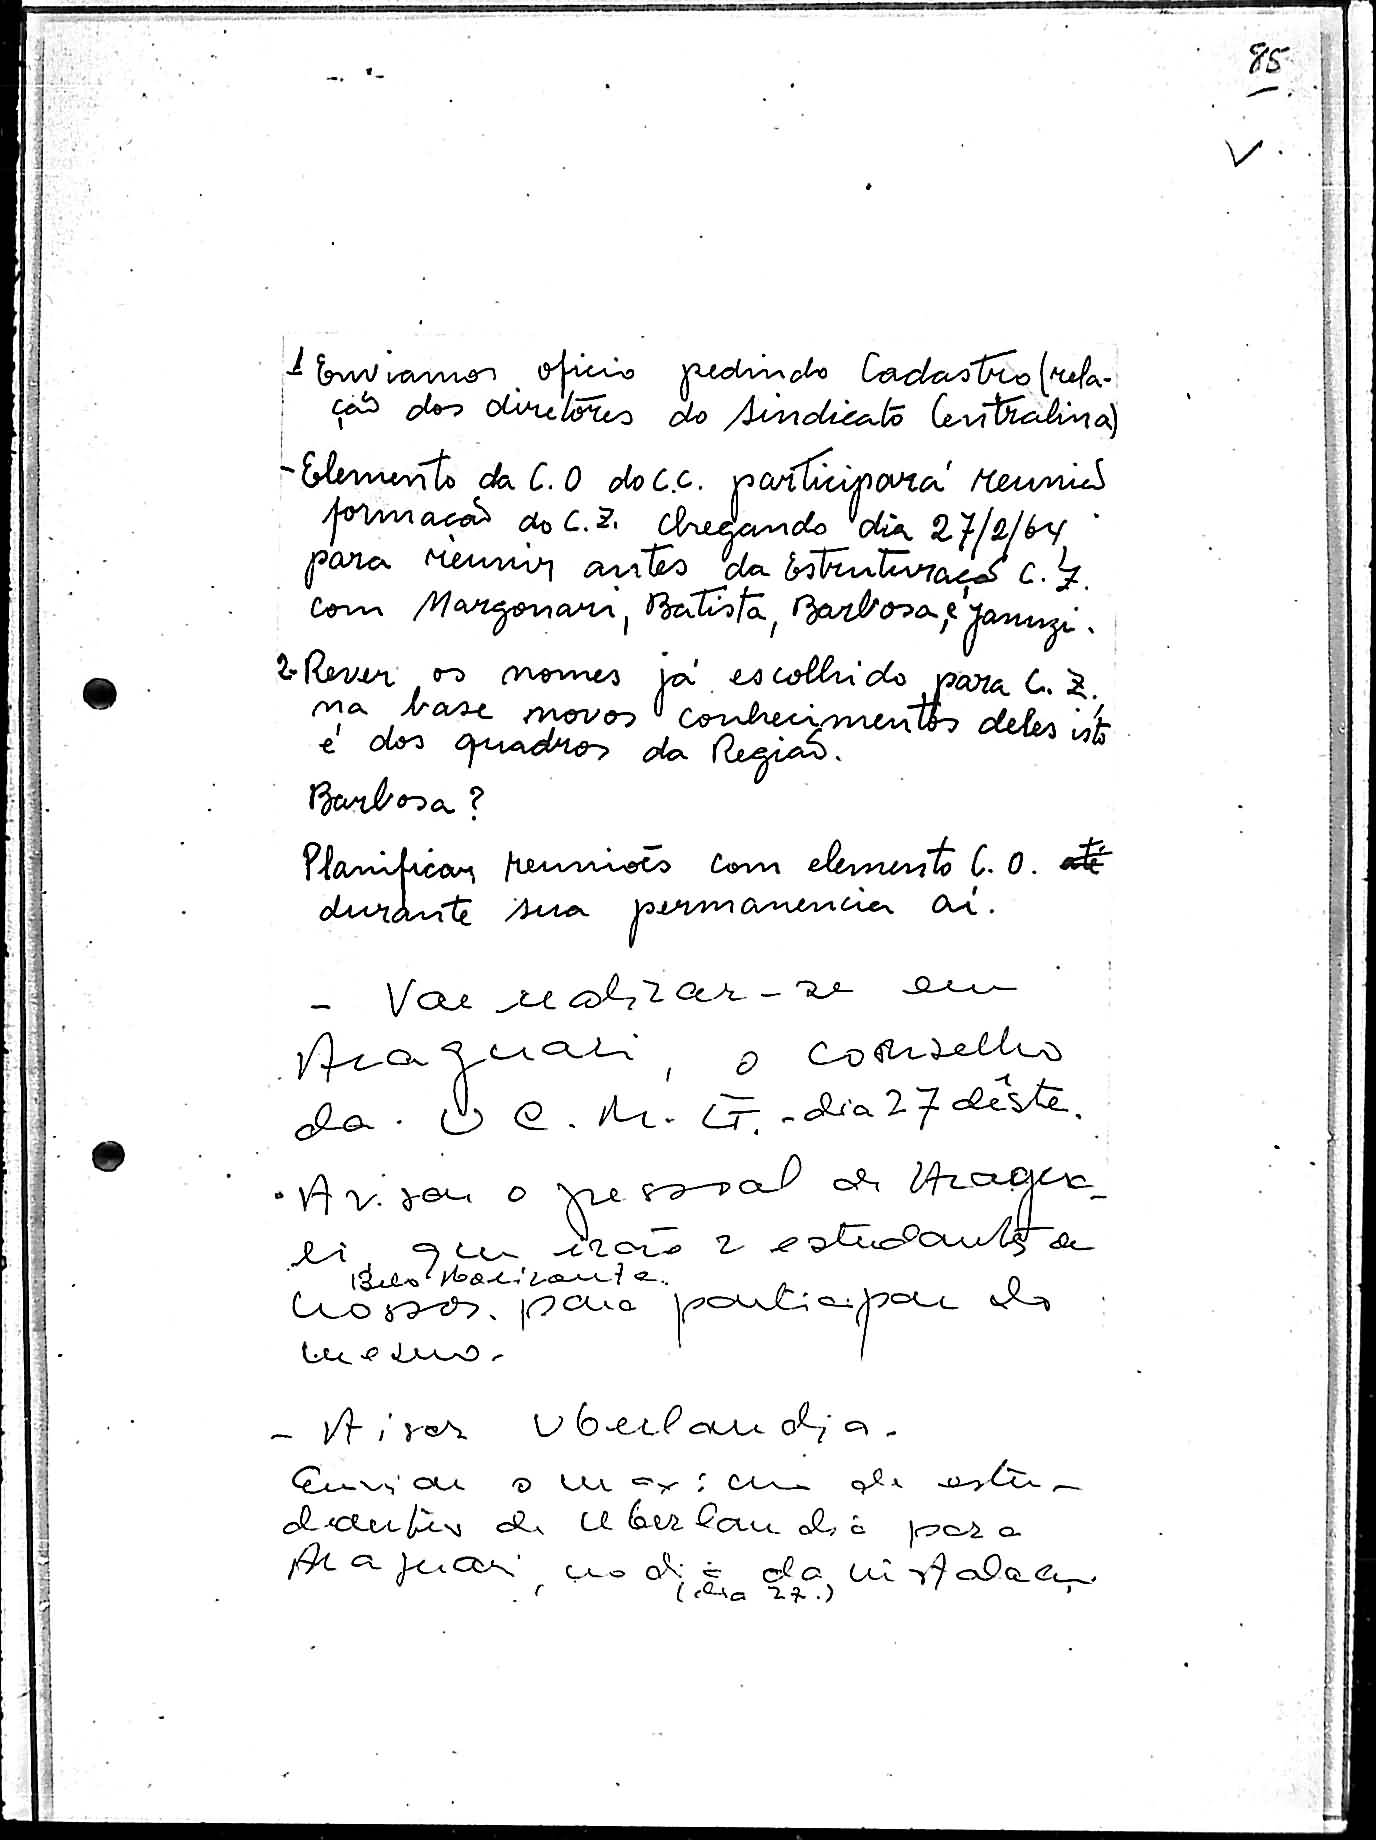 85
1 Enviamos oficio pedindo Cadastro (rela-
ção dos diretôres do Sindicato Centralina)
- Elemento da C.O do C.C. participará reunião
formação do C.Z. chegando dia 27/2/64,
para reunir antes da Estruturação C.Z.
com Margonari, Batista, Barbosa, e Januzi.
2- Rever os nomes já escolhido para C.Z.,
na base novos conhecimentos deles isto
é dos quadros da Região.
Barbosa?
Planificar reuniões com elemento C.O. até
durante sua permanencia aí.
- Vae realizar-se em
Araguari, o conselho
da U C. M. G. - dia 27 dêste.
- Avisar o pessoal de Aragua-
ri, que irão 2 estudantes de
Belo Horizonte.
nossos. para participar do
mesmo.
- Avisar Uberlandia.
Enviar o maximo de estu-
dantes de Uberlandia para
Araguari, no dia da instalação
(dia 27.)